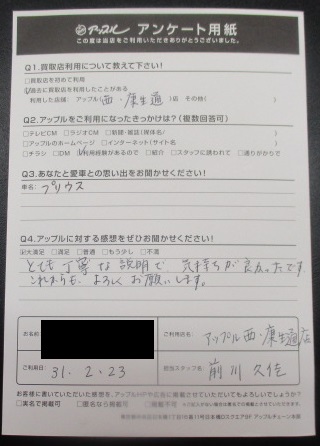 アップル アンケート用紙
この度は当店をご利用いただきありがとうございました。
Q1.買取店利用について教えて下さい!
□買取店を初めて利用
☑過去に買取店を利用したことがある
利用した店舗: アップル(西・康生通)店 その他( )
Q2.アップルをご利用になったきっかけは?(複数回答可)
□テレビCM □ラジオCM □新聞・雑誌(媒体名/ )
□アップルのホームページ □インターネット(サイト名 )
□チラシ □DM ☑利用経験があるので □紹介 □スタッフに誘われて □通りがかりで
Q3.あなたと愛車との思い出をお聞かせください!
車名: プリウス
Q4.アップルに対する感想をぜひお聞かせください!
☑大満足 □満足 □普通 □もう少し □不満
とても丁寧な説明で、気持ちが良かったです。
これからも、よろしくお願いします。
お名前
ご利用店名 アップル西・康生通店
ご利用日 31.2.23
担当スタッフ名 前川 久佳
お客様に書いていただいた感想を、アップルHPや広告に掲載させていただいてもよろしいでしょうか?
□実名で掲載可 □匿名なら掲載可 □掲載不可